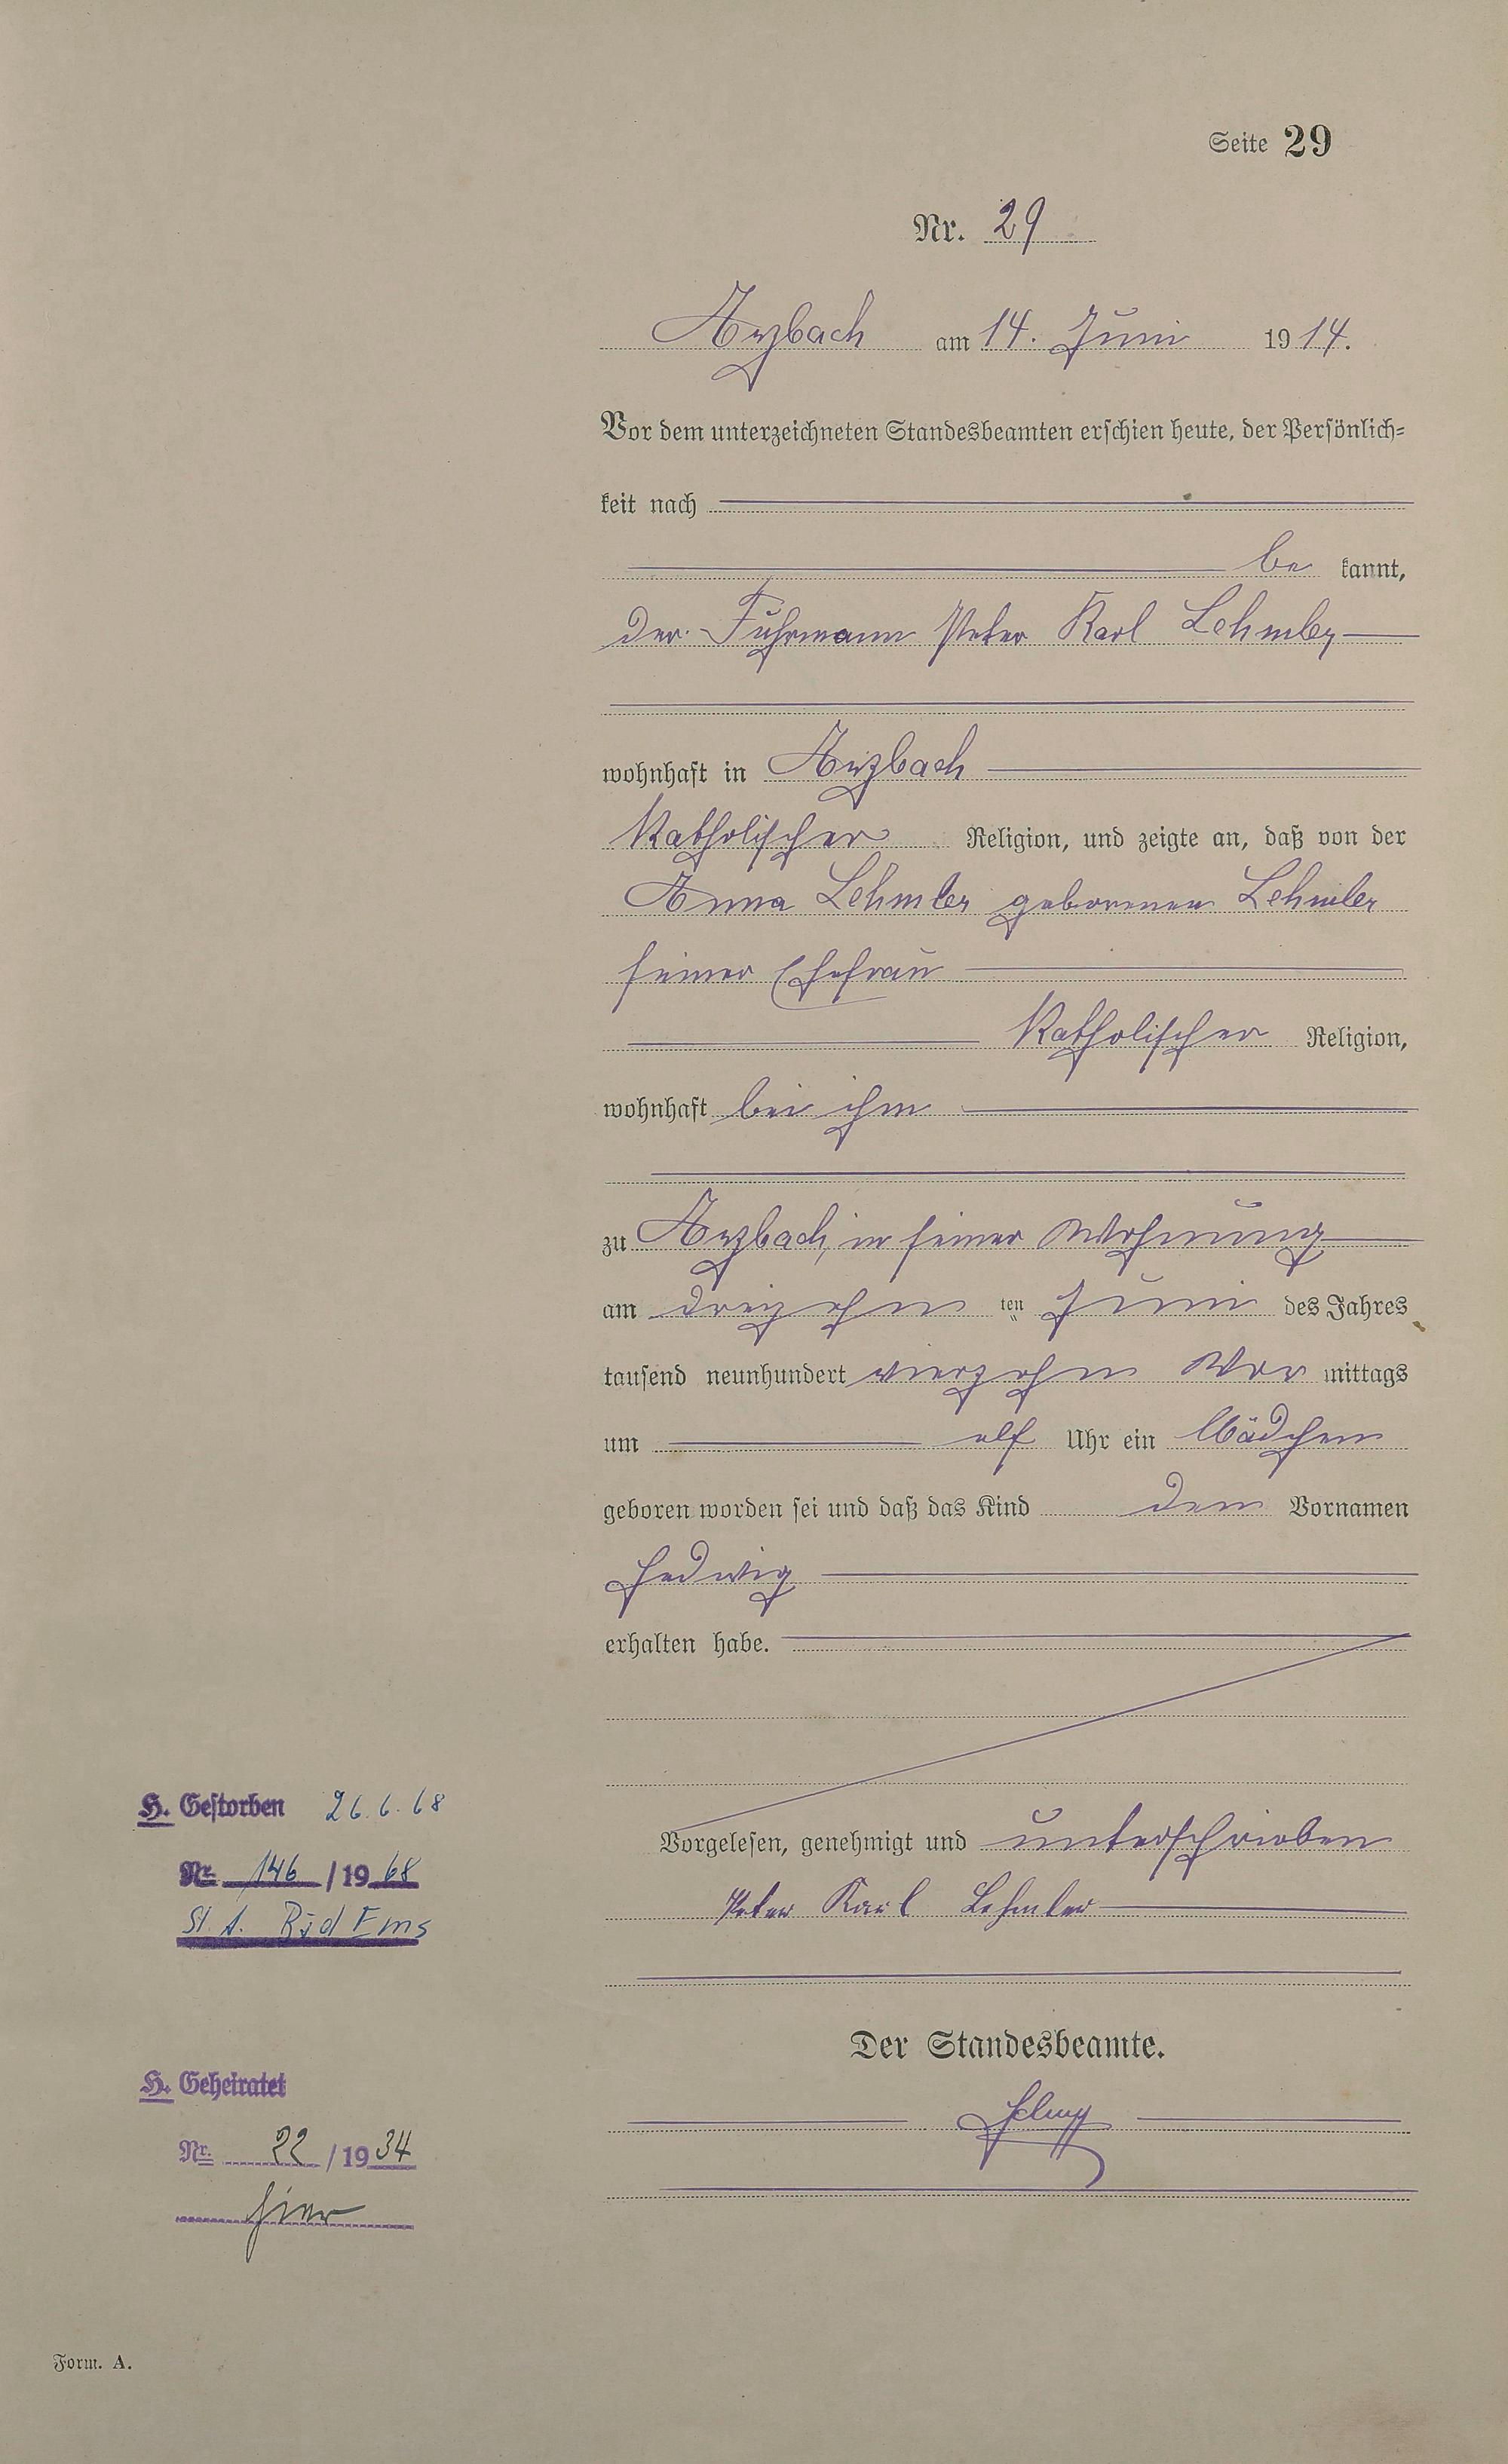 Seite 29
Nr. 29
Arzbach am 14. Juni 1914.
Vor dem unterzeichneten Standesbeamten erschien heute, der Persönlich=
keit nach
be kannt,
der Fuhrmann Peter Karl Lehmler
wohnhaft in Arzbach
Katholischer Religion, und zeigte an, daß von der
Anna Lehmler geborenen Lehmler
seiner Ehefrau
Katholischer Religion,
wohnhaft bei ihm
zu Arzbach, in seiner Wohnung
am dreizehn ten Juni des Jahres
tausend neunhundert vierzehn Vor mittags
um elf Uhr ein Mädchen
geboren worden sei und daß das Kind den Vornamen
Hedwig
erhalten habe.
Vorgelesen, genehmigt und unterschrieben
Peter Karl Lehmler
Der Standesbeamte.
H. Gestorben 26.6.68
Nr. 146 / 1968
St. A. Bad Ems
H. Geheiratet
Nr. 22 / 1934
hier
Form. A.